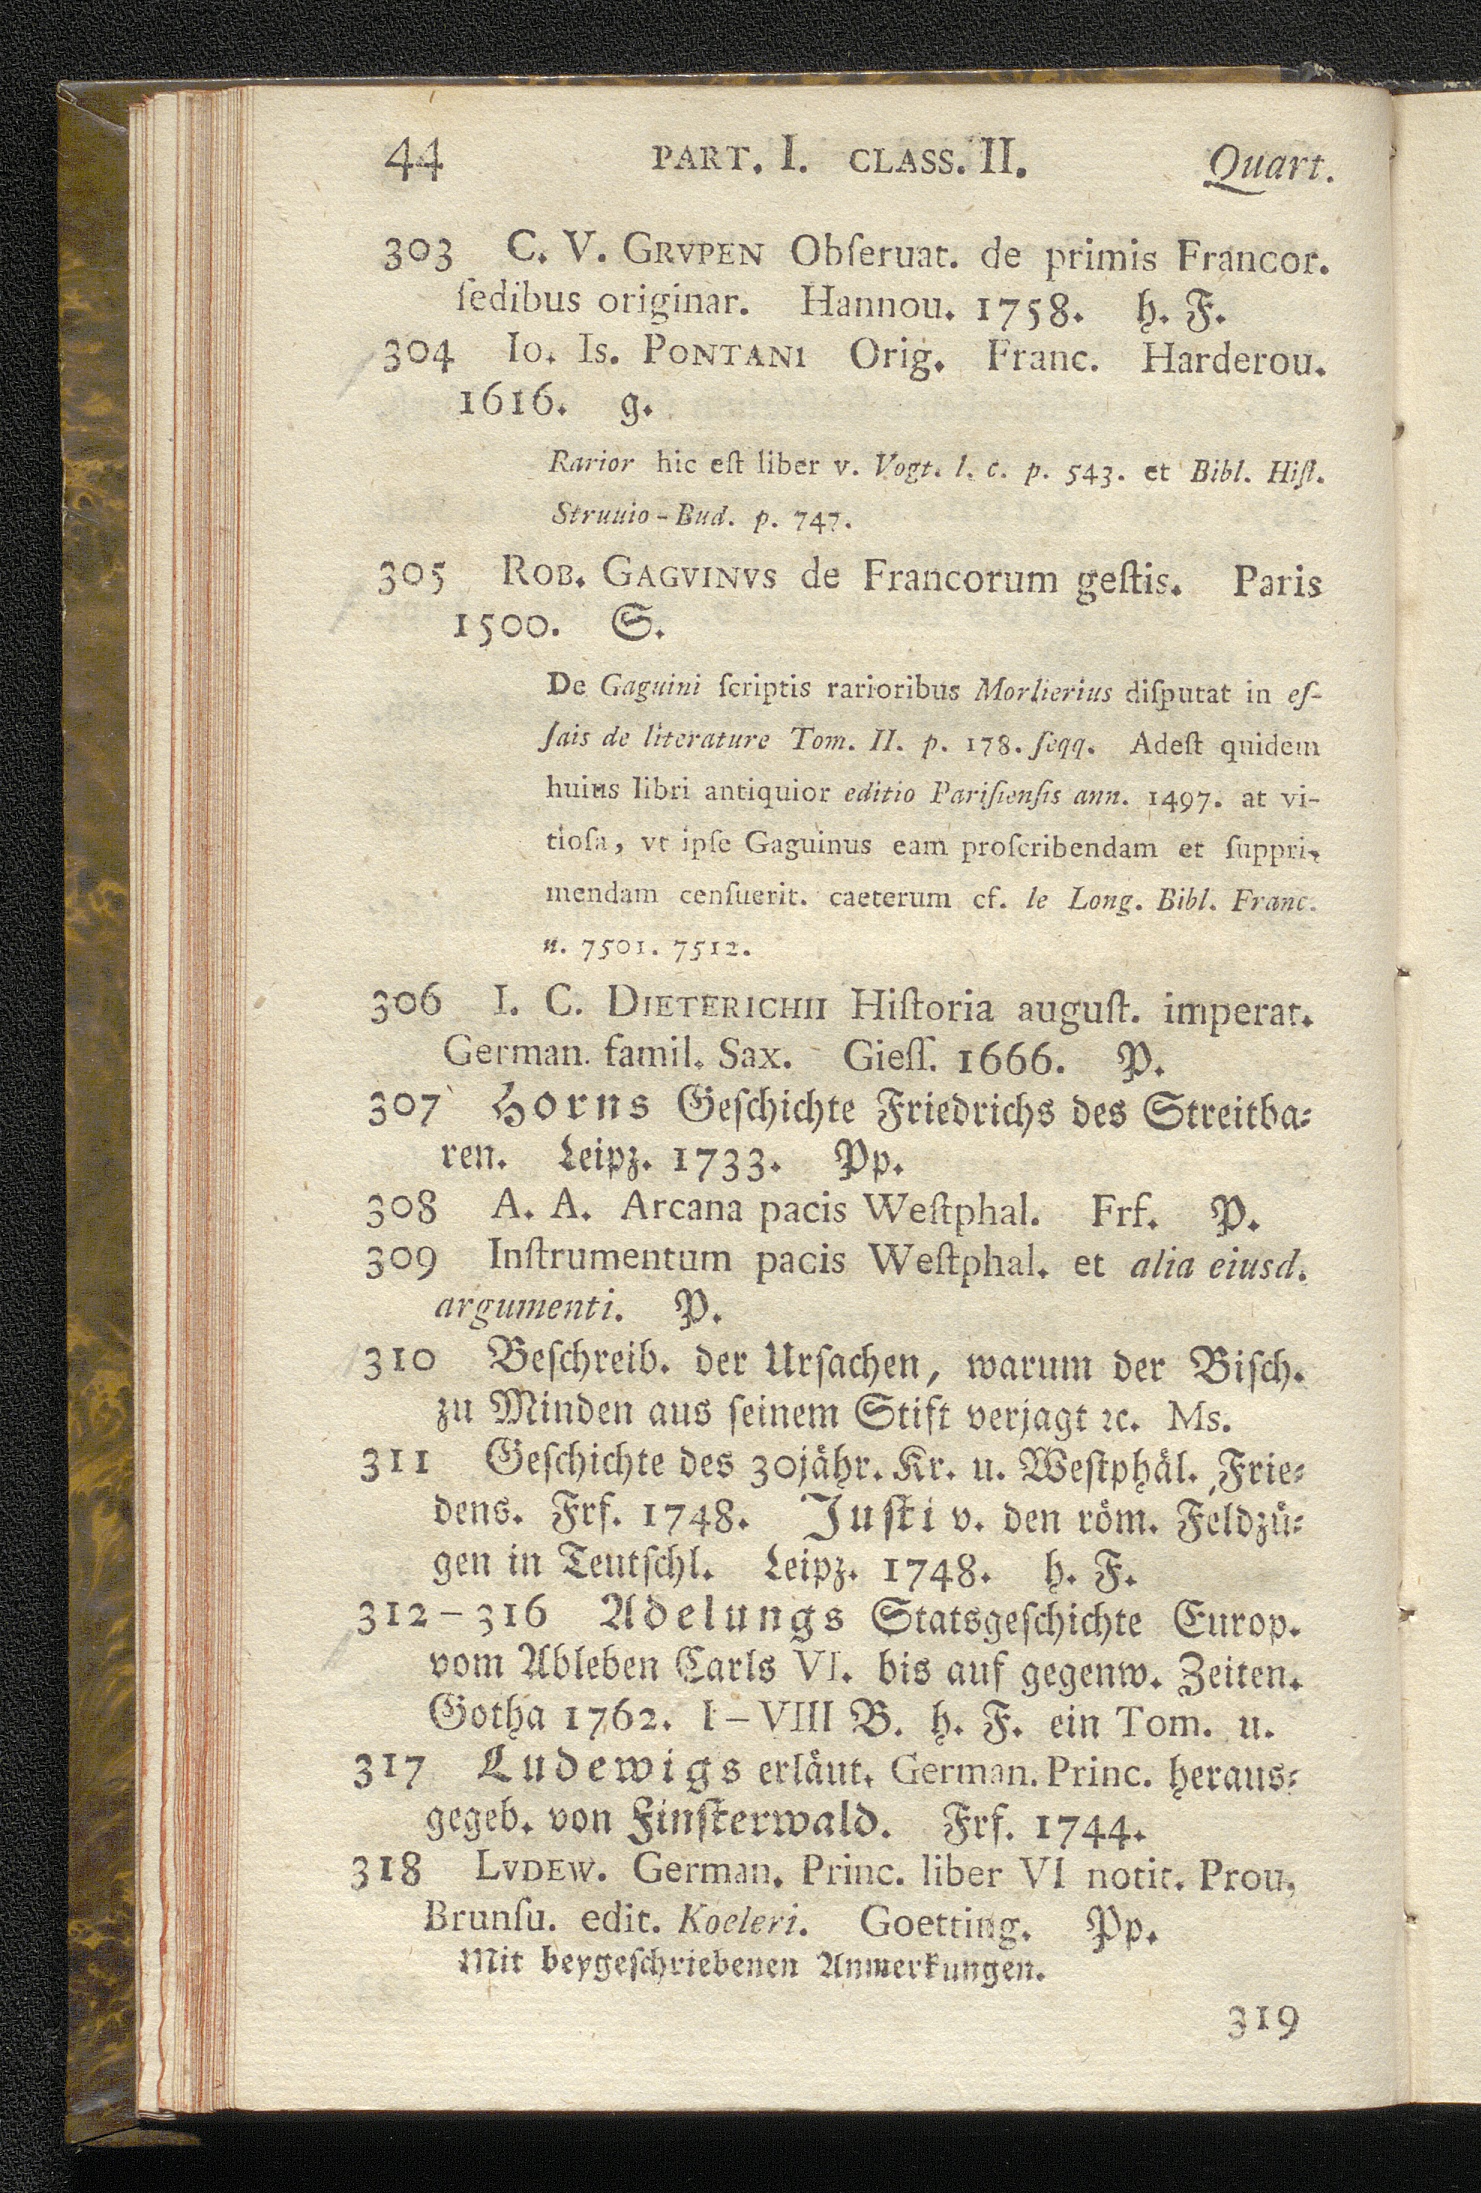 44 PART. I. CLASS. II. Quart.
303 C. V. GRVPEN Obſeruat. de primis Francor.
ſedibus originar. Hannou. 1758. h. F.
304 Io. Is. PONTANI Orig. Franc. Harderou.
1616. g.
Rarior hic eſt liber v. Vogt. l. c. p. 543. et Bibl. Hiſt.
Struuio-Bud. p. 747.
305 ROB. GAGVINVS de Francorum geſtis. Paris
1500. S.
De Gaguini ſcriptis rarioribus Morlierius diſputat in eſ-
ſais de literature Tom. II. p. 178. ſeqq. Adeſt quidem
huius libri antiquior editio Pariſienſis ann. 1497. at vi-
tioſa, vt ipſe Gaguinus eam proſcribendam et ſuppri-
mendam cenſuerit. caeterum cf. le Long. Bibl. Franc.
n. 7501. 7512.
306 I. C. DIETERICHII Hiſtoria auguſt. imperat.
German. famil. Sax. Gieſſ. 1666. P.
307 Horns Geſchichte Friedrichs des Streitba-
ren. Leipz. 1733. Pp.
308 A. A. Arcana pacis Weſtphal. Frf. P.
309 Inſtrumentum pacis Weſtphal. et alia eiusd.
argumenti. P.
310 Beſchreib. der Urſachen, warum der Biſch.
zu Minden aus ſeinem Stift verjagt ꝛc. Ms.
311 Geſchichte des 30jähr. Kr. u. Weſtphäl. Frie-
dens. Frf. 1748. Juſti v. den röm. Feldzü-
gen in Teutſchl. Leipz. 1748. h. F.
312–316 Adelungs Statsgeſchichte Europ.
vom Ableben Carls VI. bis auf gegenw. Zeiten.
Gotha 1762. I–VIII B. h. F. ein Tom. u.
317 Ludewigs erläut. German. Princ. heraus-
gegeb. von Finſterwald. Frf. 1744.
318 LVDEW. German. Princ. liber VI notit. Prou.
Brunſu. edit. Koeleri. Goetting. Pp.
Mit beygeſchriebenen Anmerkungen.
319